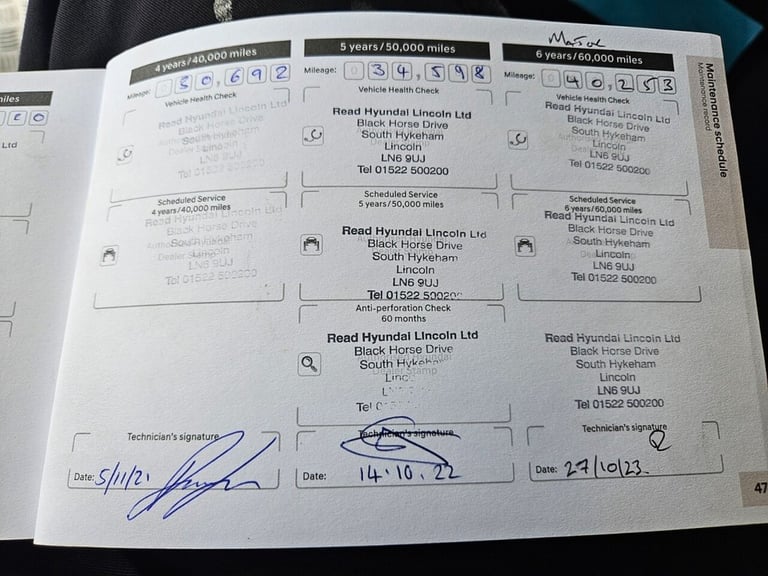 miles
E O
Ltd
4 years/40,000 miles
Mileage: 0 30,692
Vehicle Health Check
Read Hyundai Lincoln Ltd
Black Horse Drive
South Hykeham
Lincoln
LN6 9UJ
Tel 01522 500200
Scheduled Service
4 years/40,000 miles
Read Hyundai Lincoln Ltd
Black Horse Drive
South Hykeham
Lincoln
LN6 9UJ
Tel 01522 500200
Technician's signature
Date: 5/11/21
5 years/50,000 miles
Mileage: 0 34,598
Vehicle Health Check
Read Hyundai Lincoln Ltd
Black Horse Drive
South Hykeham
Lincoln
LN6 9UJ
Tel 01522 500200
Scheduled Service
5 years/50,000 miles
Read Hyundai Lincoln Ltd
Black Horse Drive
South Hykeham
Lincoln
LN6 9UJ
Tel 01522 500200
Anti-perforation Check
60 months
Read Hyundai Lincoln Ltd
Black Horse Drive
South Hykeham
Linc
L
Tel 01
Technician's signature
Date: 14.10.22
6 years/60,000 miles
Mileage: 0 40,253
Vehicle Health Check
Read Hyundai Lincoln Ltd
Black Horse Drive
South Hykeham
Lincoln
LN6 9UJ
Tel 01522 500200
Scheduled Service
6 years/60,000 miles
Read Hyundai Lincoln Ltd
Black Horse Drive
South Hykeham
Lincoln
LN6 9UJ
Tel 01522 500200
Read Hyundai Lincoln Ltd
Black Horse Drive
South Hykeham
Lincoln
LN6 9UJ
Tel 01522 500200
Technician's signature
Date: 27/10/23.
Maintenance schedule
Maintenance record
47